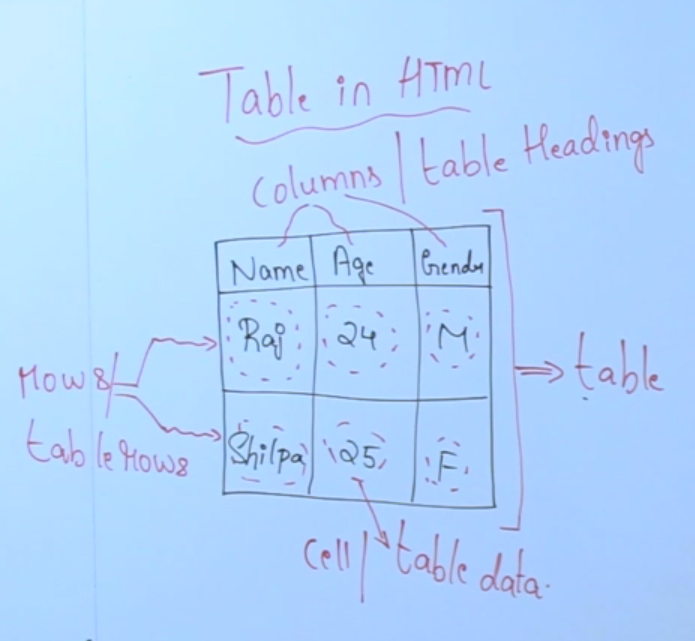 Table in HTML
Columns / table Headings
Name Age Gender
Raj 24 M
Rows/
table rows
Shilpa 25 F
table
Cell/ table data.